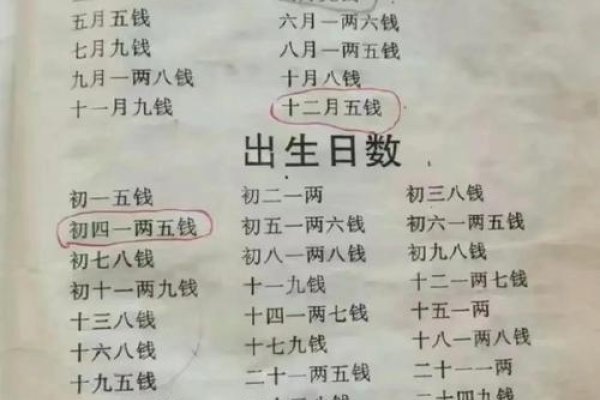 五月五钱 六月一两六钱
七月九钱 八月一两五钱
九月一两八钱 十月八钱
十一月九钱 十二月五钱
出生日数
初一五钱 初二一两 初三八钱
初四一两五钱 初五一两六钱 初六一两五钱
初七八钱 初八一两八钱 初九八钱
初十一两九钱 十一九钱 十二一两七钱
十三八钱 十四一两七钱 十五一两
十六八钱 十七九钱 十八一两八钱
十九五钱 二十一两五钱 二十一一两
二十四九钱